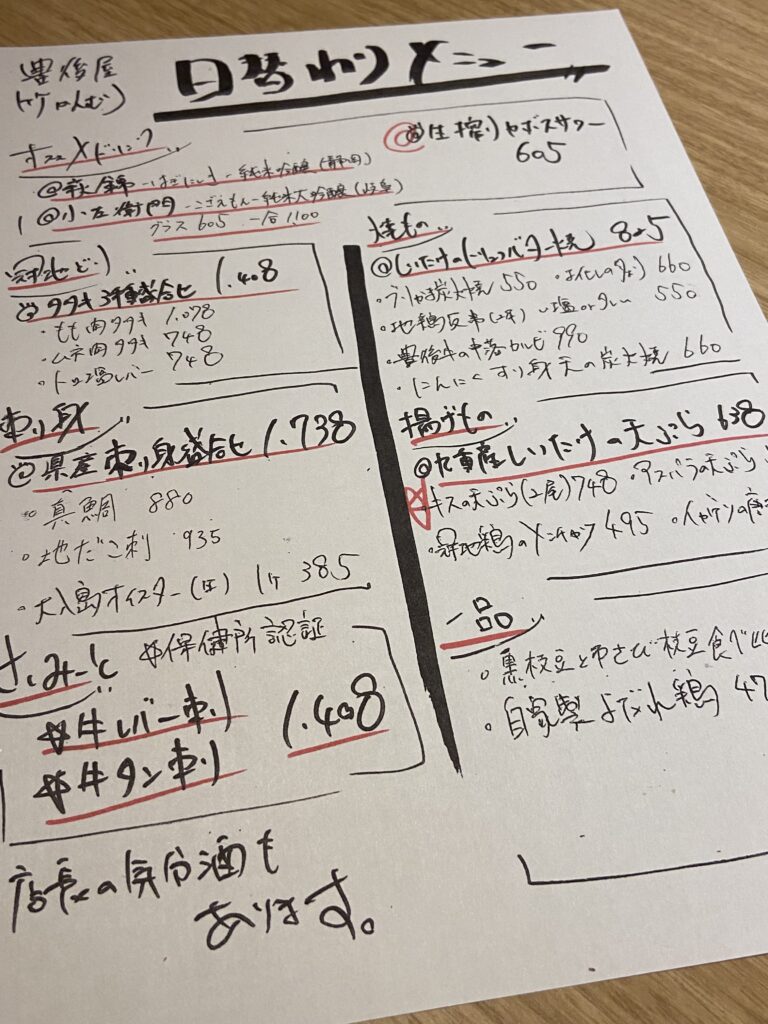 豊後屋
日替わりメニュー
オススメドリンク
◎萩錦 はぎにしき 純米吟醸(静岡)
◎小左衛門 こざえもん 純米大吟醸(岐阜)
グラス 605 一合 1,100
生搾りカボスサワー
605
冠地どり
タタキ3種盛合せ 1.408
・もも肉タタキ 1.078
・ムネ肉タタキ 748
・トロ湯レバー 748
刺し身
県産刺し身盛合せ 1.738
真鯛 880
・地だこ刺 935
・大入島オイスター(生) 1ケ 385
さしみーと ☆保健所認証
☆牛レバー刺し
☆牛タン刺し 1.408
店長の気分酒も
あります。
焼もの
◎しいたけのにんにくバター焼 825
・ぶりかま炭火焼 550 ・よだしのタタキ 660
・地鶏炭串(2本) 塩orタレ 550
・豊後牛の中落カルビ 990
・にんにくすり身天の炭火焼 660
揚げもの
◎九重産しいたけの天ぷら 638
・キスの天ぷら(2尾) 748 ・アスパラの天ぷら
・冠地鶏のメンチカツ 495 ・イカゲソの唐
一品
・黒枝豆とわさび枝豆食べ比
・自家製よだれ鶏 47